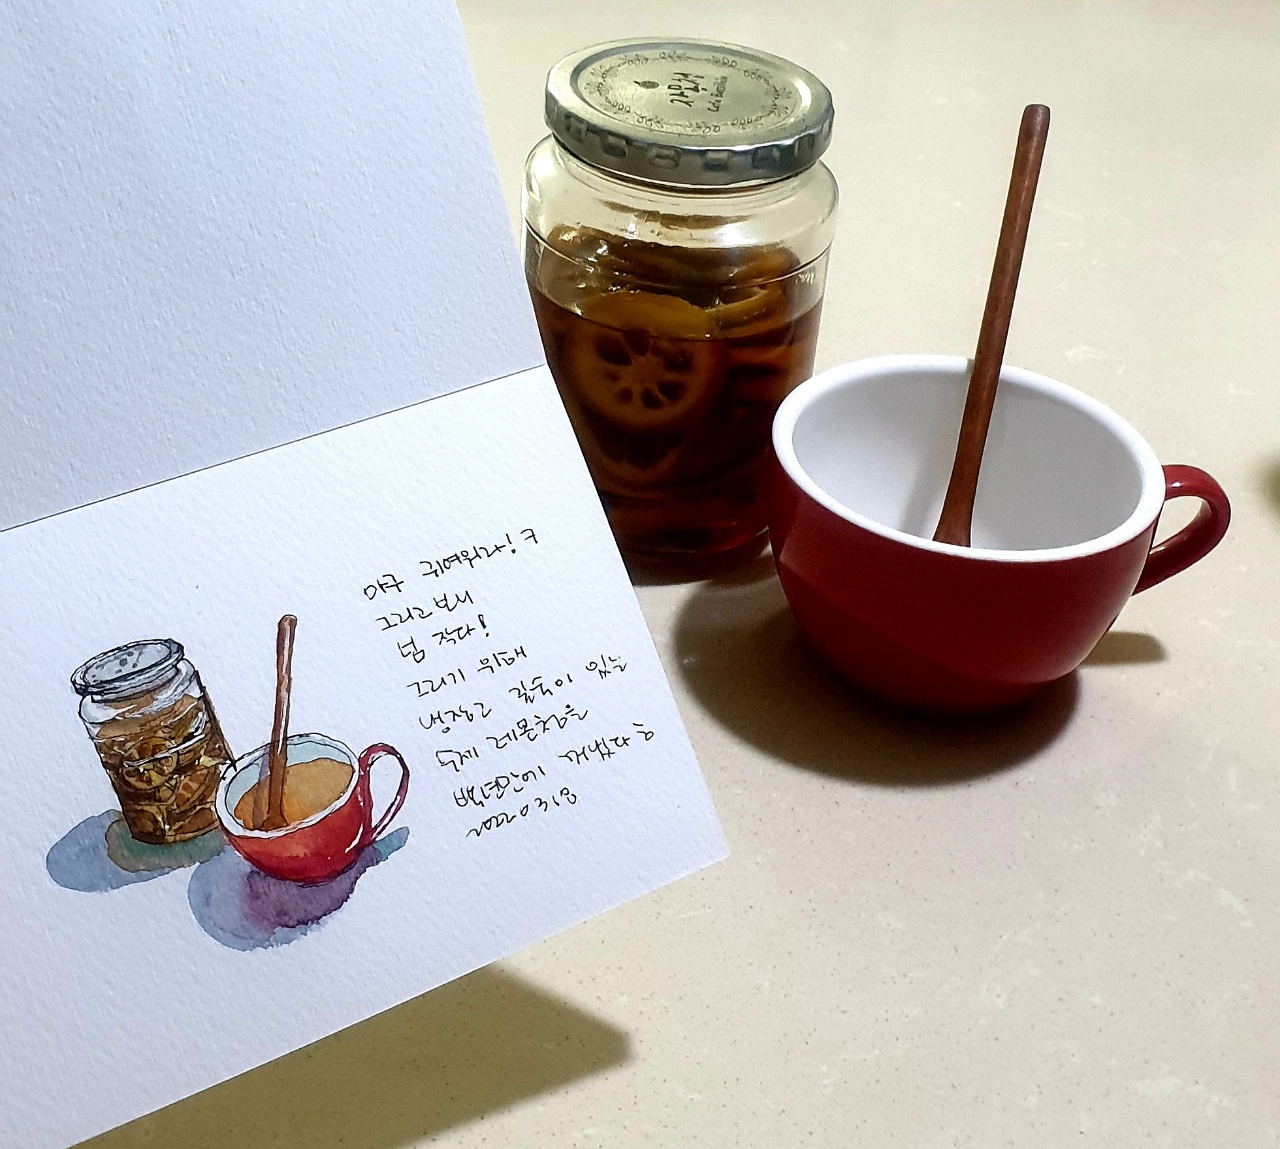 아구 귀여워라! ㅋ
그리고보니
넘 작다!
그리기 위해
냉장고 깊숙이 있는
수제 레몬청을
백년만에 꺼냈다 ㅎ
20220318